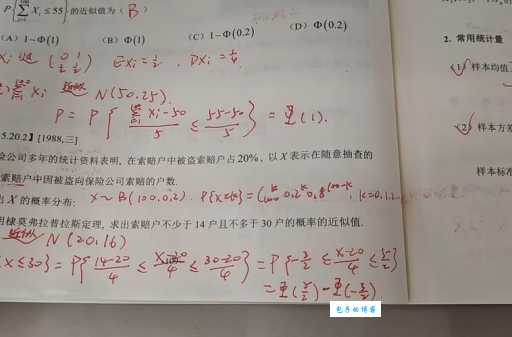 P{∑ Xᵢ ≤ 55} 的近似值为( B )
(A) 1-Φ(1) (B) Φ(1) (C) 1-Φ(0.2) (D) Φ(0.2)
Xᵢ (0 1 / ½ ½) EXᵢ=½, DXᵢ=¼
∑ Xᵢ 近似 N(50.25).
P = P{ (∑Xᵢ-50)/5 ≤ (55-50)/5 } = Φ(1).
5.20.2】[1988,三]
险公司多年的统计资料表明,在索赔户中被盗索赔户占20%。以X表示在随意抽查的
索赔户中因被盗向保险公司索赔的户数.
出X的概率分布: X~B(100.0.2). P{X=k}=C₁₀₀ᵏ 0.2ᵏ 0.8¹⁰⁰⁻ᵏ, k=0.1.2
用棣莫弗拉普拉斯定理,求出索赔户不少于14户且不多于30户的概率的近似值.
近似 N(20.16)
X≤30}=P{ (14-20)/4 ≤ (X-20)/4 ≤ (30-20)/4 }=P{ -3/2 ≤ (X-20)/4 ≤ 5/2 }
=Φ(5/2)-Φ(-3/2)
2. 常用统计量
(1) 样本均值
(2) 样本方差
样本标
包子的博客